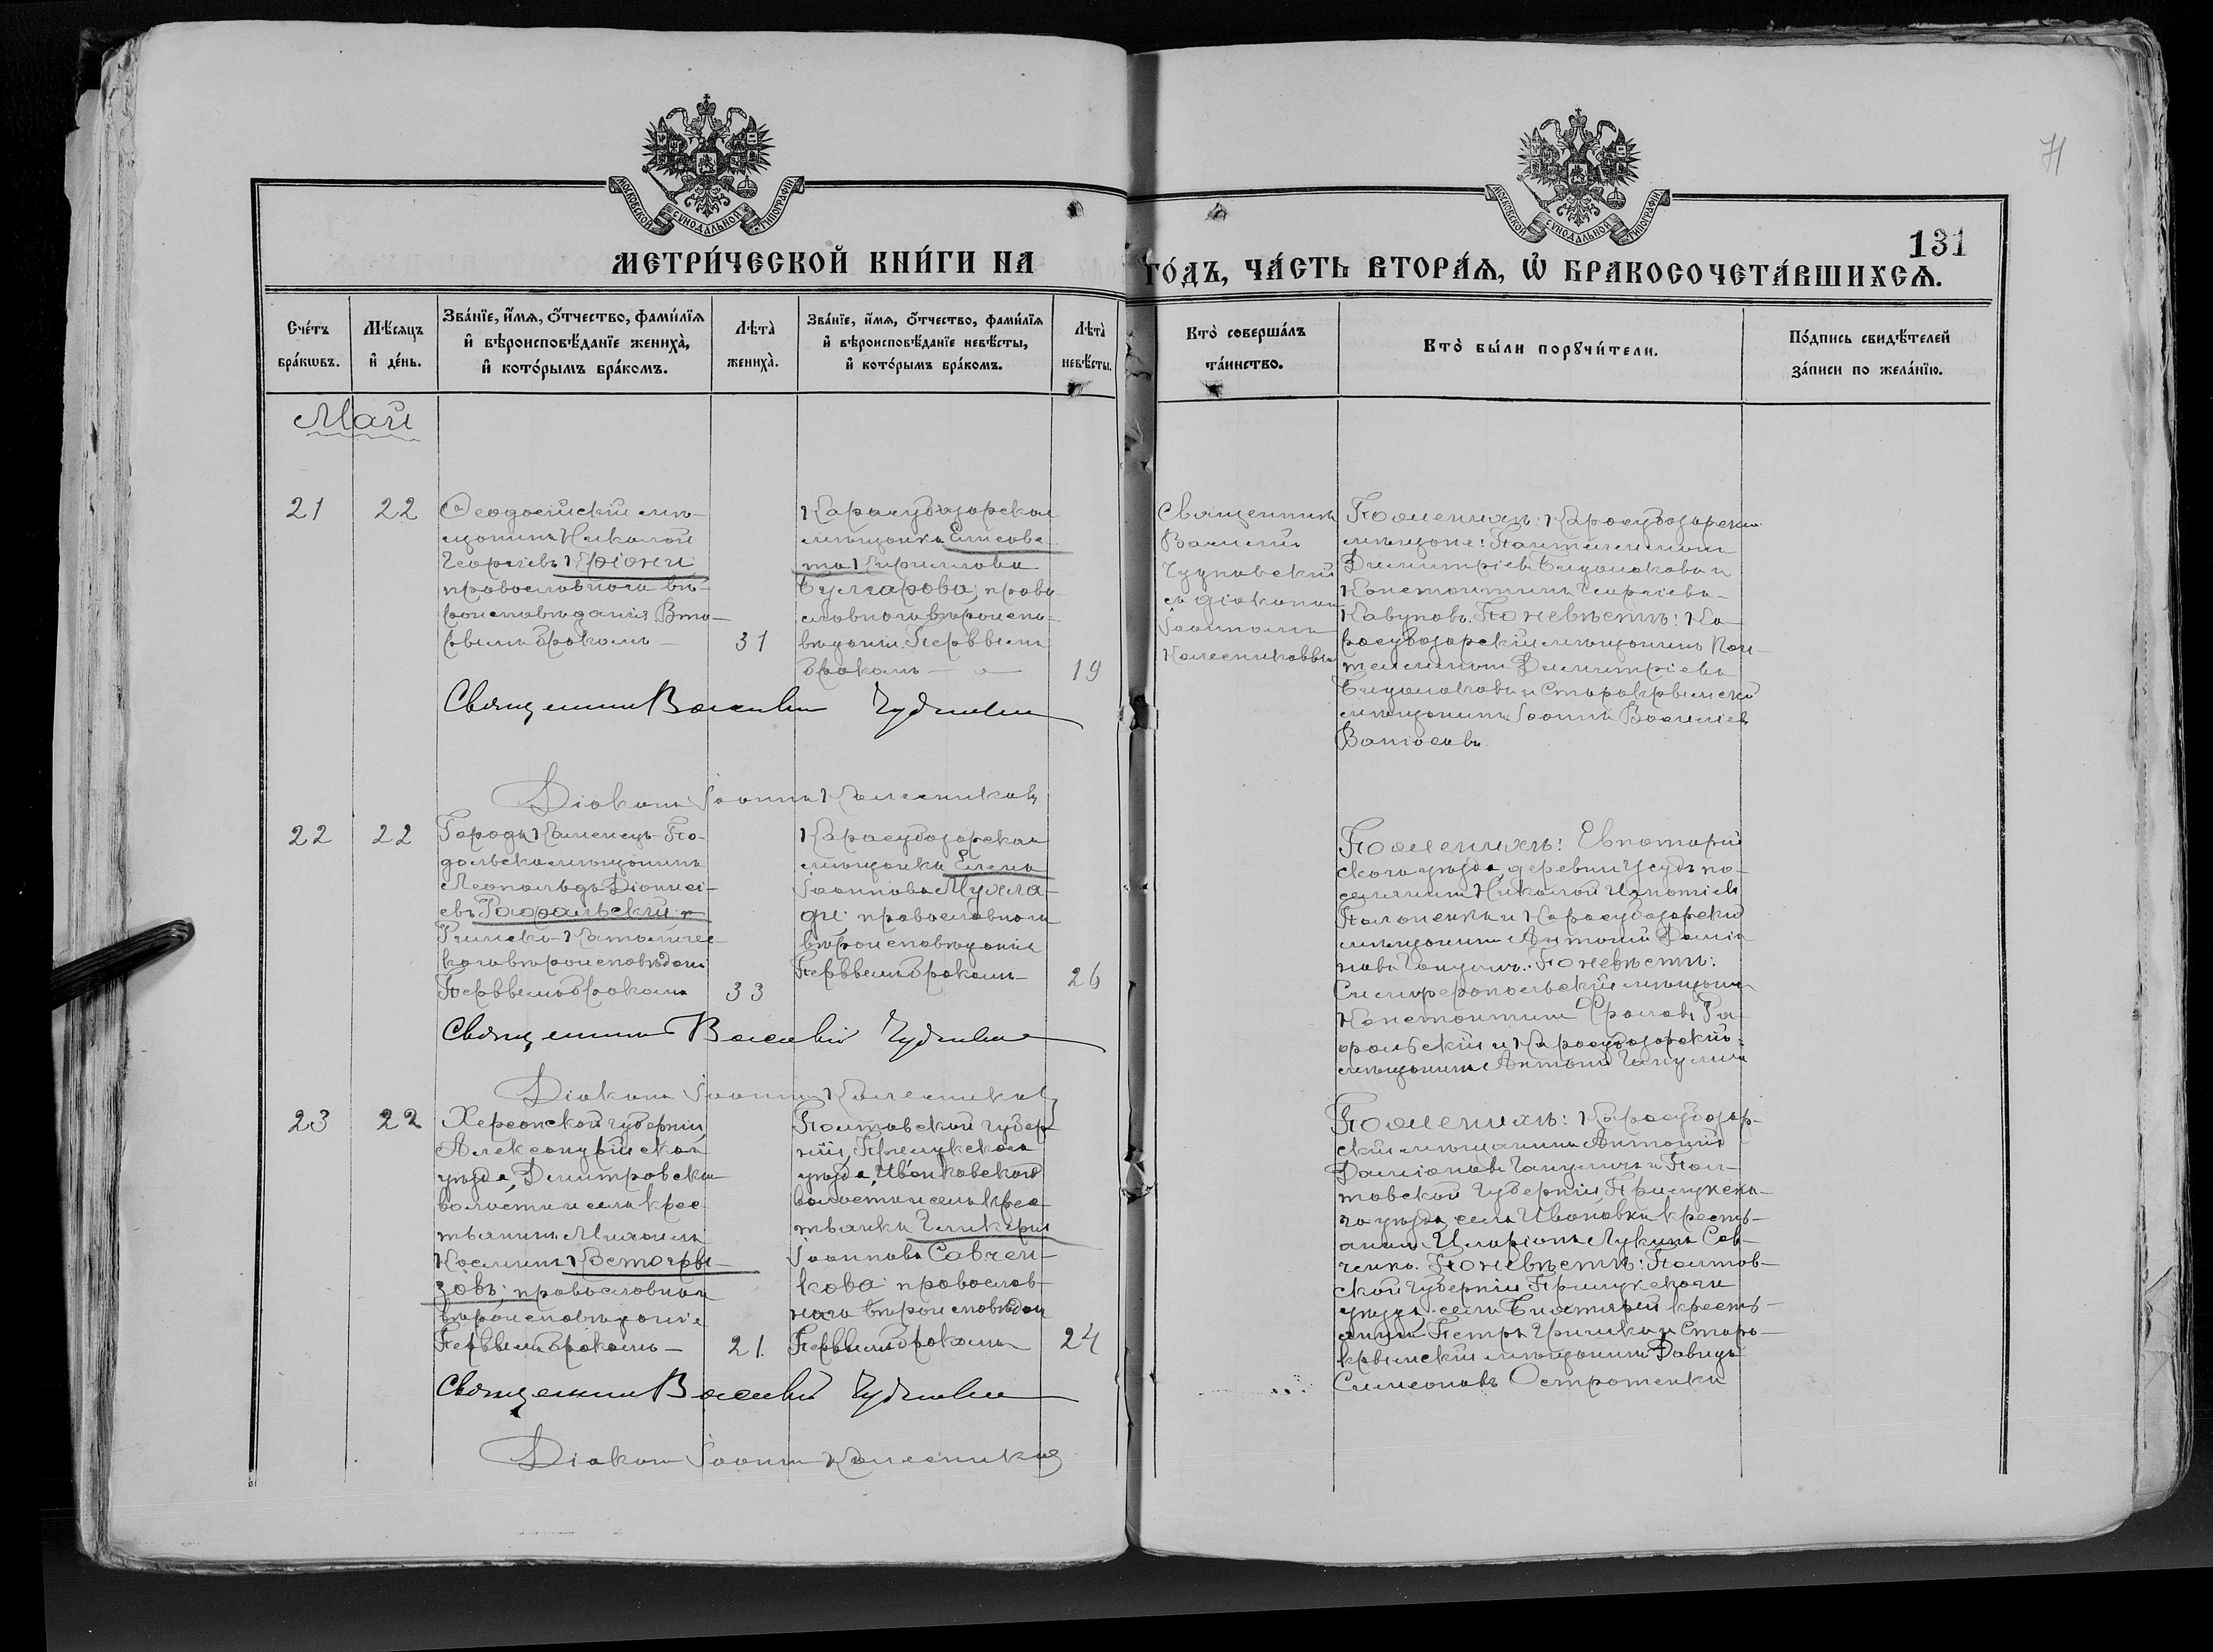 71
131
МОСКОВСКОЙ СѴНОДАЛЬНОЙ ТИПОГРАФІИ
МОСКОВСКОЙ СѴНОДАЛЬНОЙ ТИПОГРАФІИ
МЕТРИ́ЧЕСКОЙ КНИ́ГИ НА ГО́ДЪ, ЧА́СТЬ ВТОРА́Ѧ, Ѽ БРАКОСОЧЕТА́ВШИХСѦ.
Сче́тъ бра́кѡвъ.
Мѣ́сяцъ и҆ де́нь.
Зва́нїе, и҆́мѧ, ѻ҆́тчество, фами́лїѧ
и҆ вѣроисповѣ́данїе жениха̀,
и҆ кото́рымъ бра́комъ.
Лѣта̀ жениха̀.
Зва́нїе, и҆́мѧ, ѻ҆́тчество, фами́лїѧ
и҆ вѣроисповѣ́данїе невѣ́сты,
и҆ кото́рымъ бра́комъ.
Лѣта̀ невѣ́сты.
Кто̀ соверша́лъ та́инство.
Кто̀ бы́ли порꙋчи́тели.
По́дпись свидѣ́телей
за́писи по жела́нїю.
Май
21
22
Ѳеодосійскій мѣ-
щанинъ Николай
Георгіевъ
православнаго вѣ-
роисповѣданія Вто-
рымъ бракомъ
31
Карасубазарская
мѣщанка Елисаве-
та Кириллова
Булгарова; право-
славнаго вѣроиспо-
вѣданія. Первымъ
бракомъ
19
Священникъ
Василій
Чудновскій
съ діакономъ
Іоанномъ
Колесниковымъ
По женихѣ: Карасубазарскіе
мѣщане: Пантелеймонъ
Димитріевъ и
Константинъ Георгіевъ
Кавуновъ. По невѣстѣ: Ка-
расубазарскій мѣщанинъ Пан-
телеймонъ Димитріевъ
и Старокрымскій
мѣщанинъ Іоаннъ Васильевъ
Священникъ Василій Чудновскій
Діаконъ Іоаннъ Колесниковъ
22
22
Города Каменецъ-По-
дольска мѣщанинъ
Леопольдъ Діонисі-
евъ
Римско-Католичес-
каго вѣроисповѣданія
Первымъ бракомъ
33
Карасубазарская
мѣщанка Елена
Іоаннова
православнаго
вѣроисповѣданія
Первымъ бракомъ
26
По женихѣ: Евпаторій-
скаго уѣзда, деревни по-
селянинъ Николай Игнатіевъ
и Карасубазарскій
мѣщанинъ Антоній Даміа-
новъ По невѣстѣ:
Симферопольскій мѣщанинъ
Константинъ
и Карасубазарскій
мѣщанинъ Антоній
Священникъ Василій Чудновскій
Діаконъ Іоаннъ Колесниковъ
23
22
Херсонской губерніи,
Александрійскаго
уѣзда, Димитровской
волости и села крес-
тьянинъ Михаилъ
Косминъ Кветогры-
зовъ; православнаго
вѣроисповѣданія
Первымъ бракомъ
21.
Полтавской губер-
ніи, Прилукскаго
уѣзда, Иваньковской
волости и села крес-
тьянка Гликерія
Іоаннова Савчен-
кова: православ-
наго вѣроисповѣдан
Первымъ бракомъ
24
По женихѣ: Карасубазар-
скій мѣщанинъ Антоній
Даміановъ и Пол-
тавской губерніи, Прилукска-
го уѣзда, села Ивановки кресть-
янинъ Иларіонъ Лукинъ Сав-
ченко. По невѣстѣ: Полтав-
ской губерніи Прилукскаго
уѣзда, села кресть-
янинъ Петръ и Старо-
крымскій мѣщанинъ Давидъ
Симеоновъ
Священникъ Василій Чудновскій
Діаконъ Іоаннъ Колесниковъ